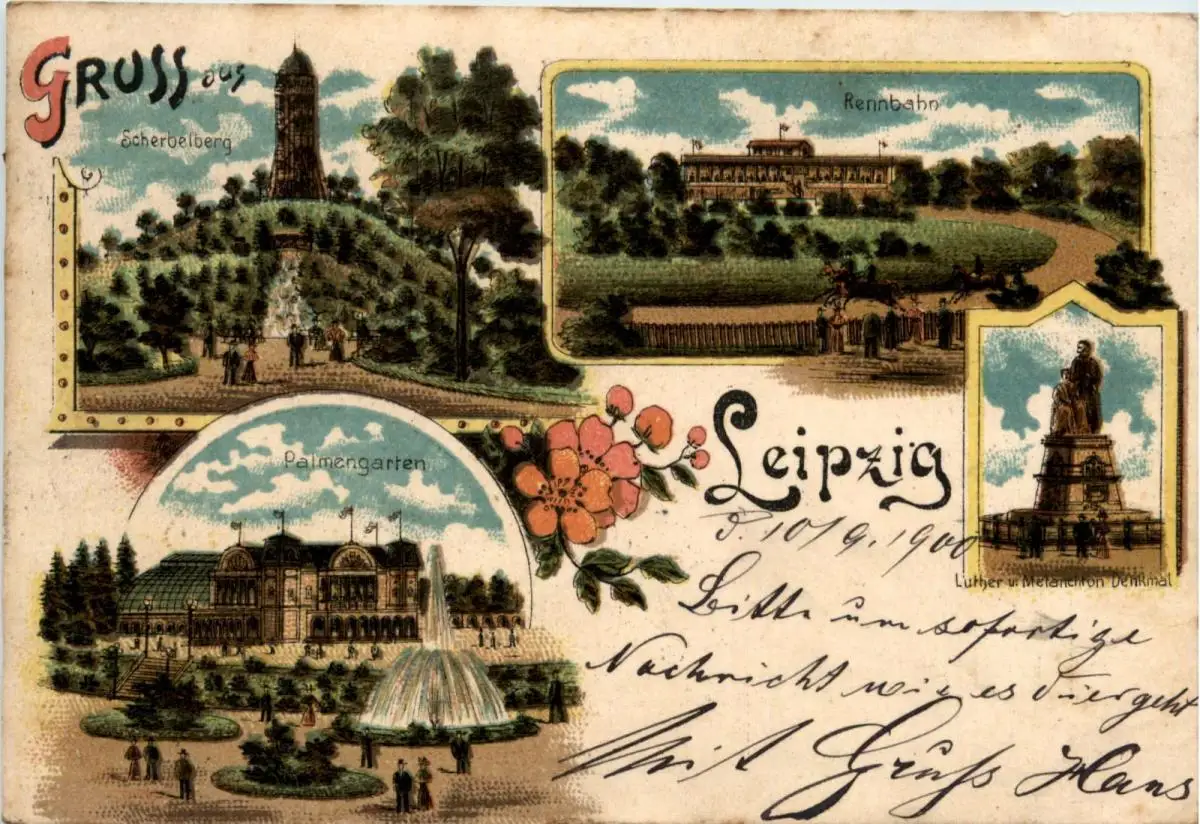 GRUSS aus
Scherbelberg
Rennbahn
Palmengarten
Leipzig
Luther u. Melanchton Denkmal
10/9. 1900
Bitte um sofortige
Nachricht wie es Dier geht
Mit Gruß Hans